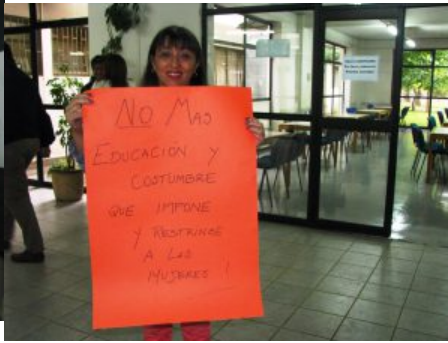 NO MAS
EDUCACION Y
COSTUMBRE
QUE IMPONE
Y RESTRINGE
A LAS
MUJERES !